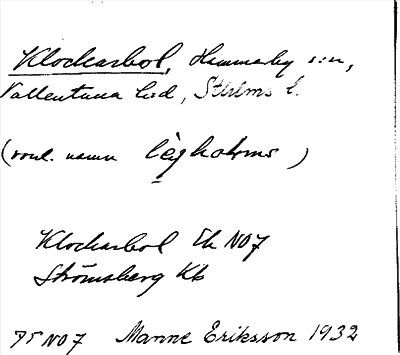 Klockarbol, Hammarby s:n,
Vallentuna hd, Sthlms l.
(vanl. namn Cégholms)
Klockarbol Ek NO7
Strömsberg Kb
75 NO 7 Manne Eriksson 1932